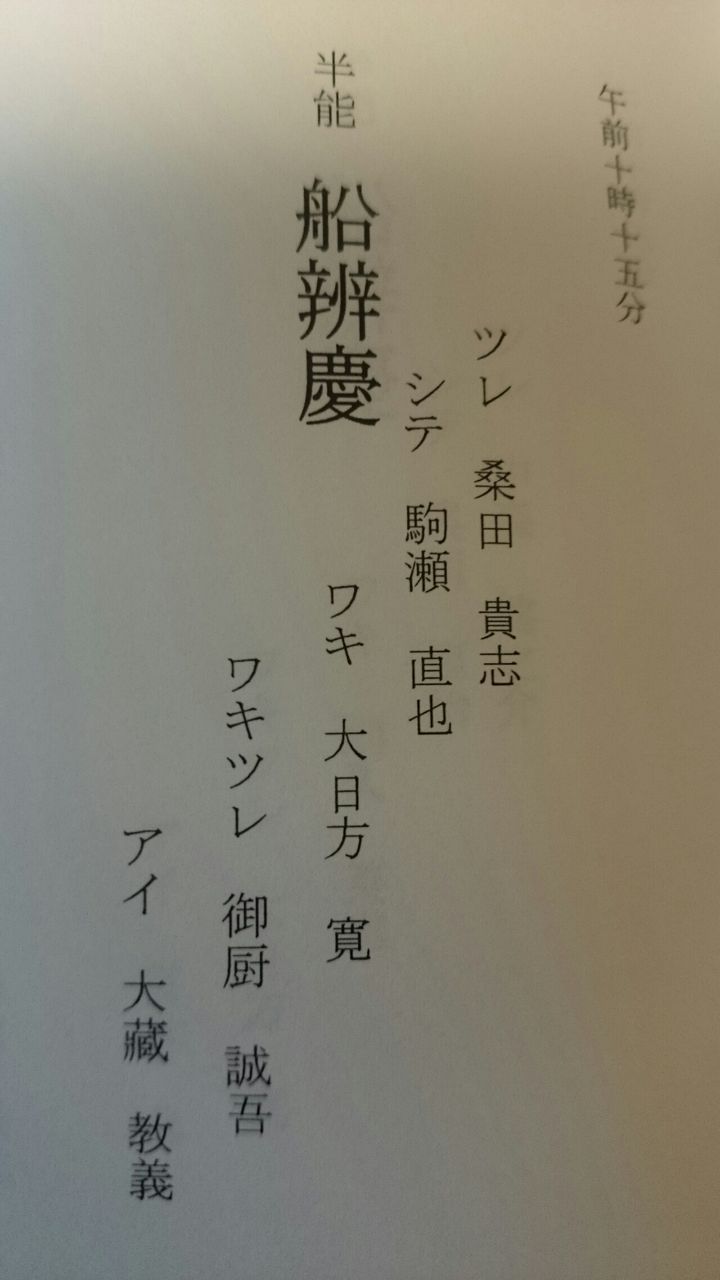 午前十時十五分
ツレ 桑田 貴志
シテ 駒瀬 直也
半能 船辨慶
ワキ 大日方 寛
ワキツレ 御厨 誠吾
アイ 大藏 教義